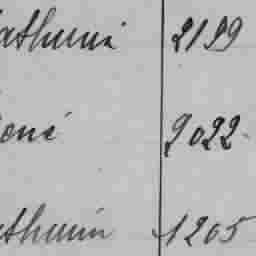 athurin 2199
oné 2022
athurin 1205